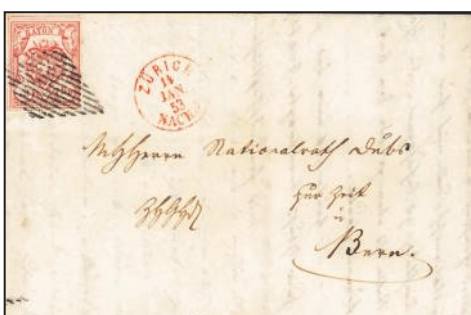 RAYON
ZÜRICH
14
JAN
53
NACHM
Herrn Nationalrath Dubs
zur Zeit
in
Bern.